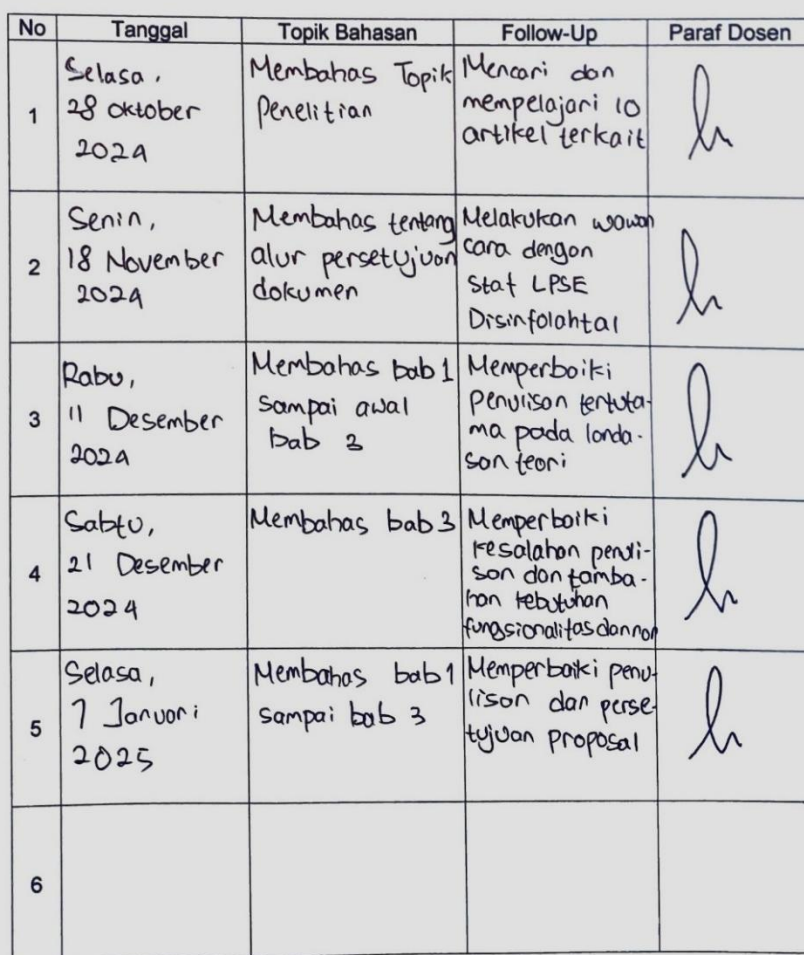 No Tanggal Topik Bahasan Follow-Up Paraf Dosen
1
Selasa,
28 Oktober
2024
Membahas Topik
Penelitian
Mencari dan
mempelajari 10
artikel terkait
2
Senin,
18 November
2024
Membahas tentang
alur persetujuan
dokumen
Melakukan wawan
cara dengan
Staf LPSE
Disinfolahtal
3
Rabu,
11 Desember
2024
Membahas bab 1
sampai awal
bab 3
Memperbaiki
Penulisan terututa-
ma pada landa-
san teori
4
Sabtu,
21 Desember
2024
Membahas bab 3
Memperbaiki
kesalahan penuli-
san dan tamba-
han kebutuhan
fungsionalitas dan non
5
Selasa,
7 Januari
2025
Membahas bab 1
sampai bab 3
Memperbaiki penu-
lisan dan perse-
tujuan proposal
6